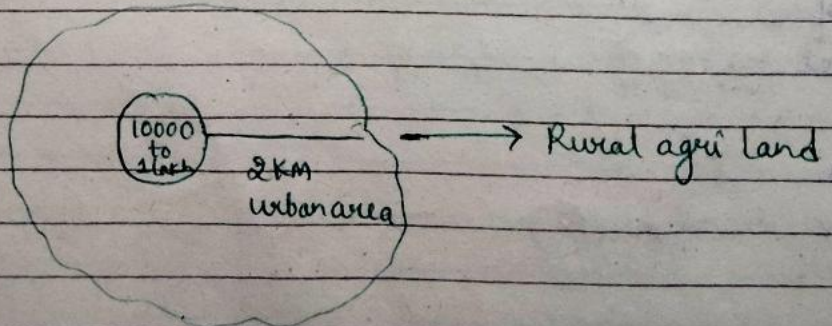 10000
to
1 lakh
2KM
urban area
Rural agri land